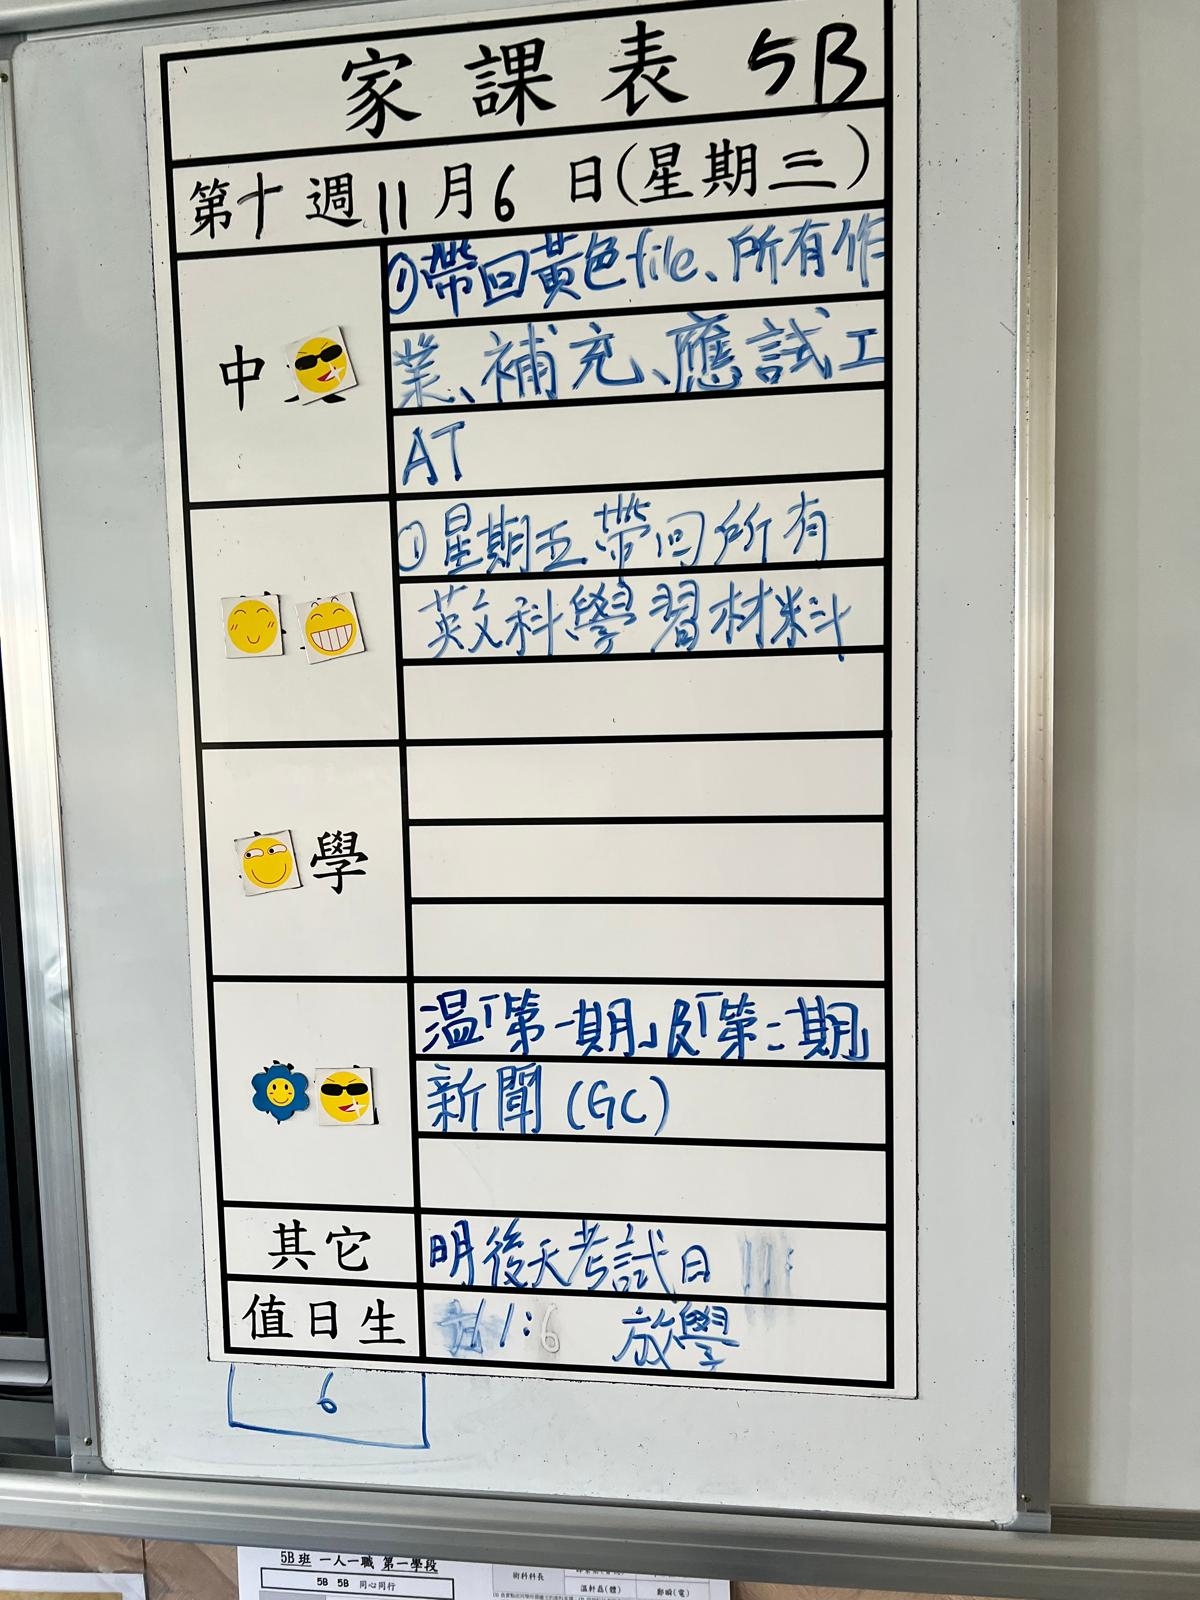 家課表 5B
第十週11月6日(星期三)
中
①帶回黃色file、所有作
業、補充、應試工
AT
①星期五帶回所有
英文科學習材料
學
溫「第一期」及「第二期」
新聞(GC)
其它
明後天考試日
值日生
放學
6
5B班 一人一職 第一學段
5B 5B 同心同行
術科科長